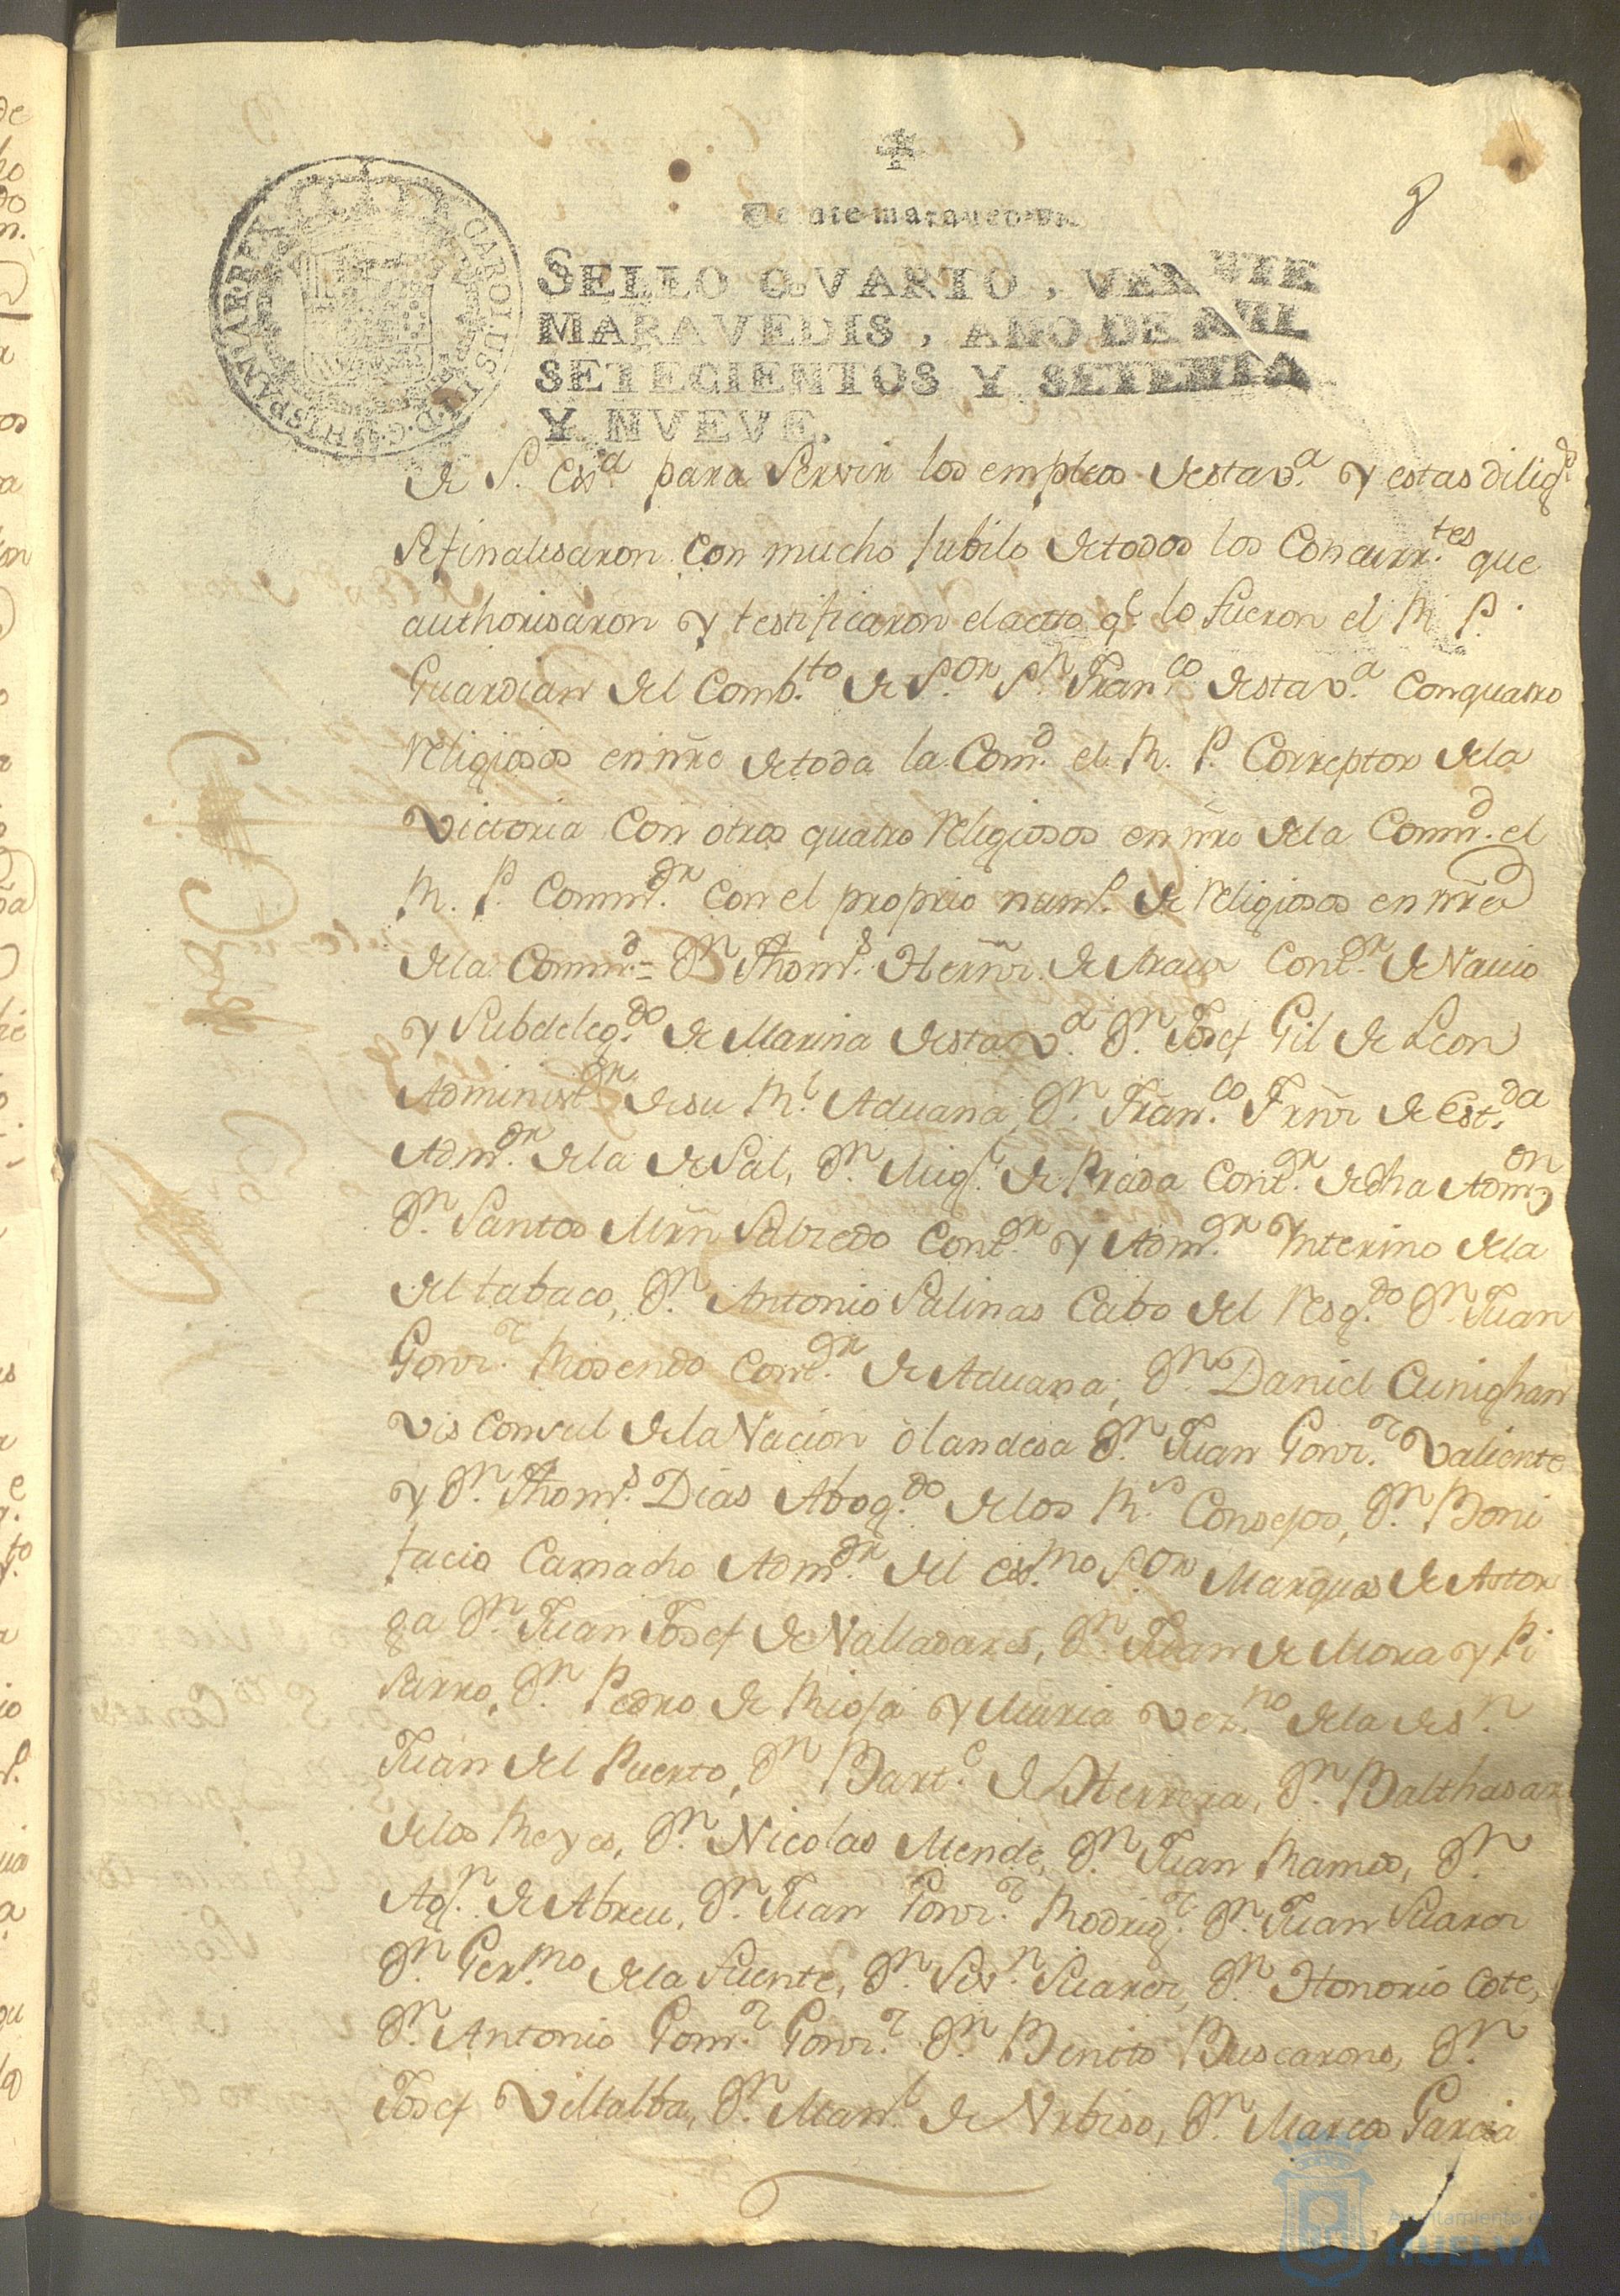 8
Veinte maravedis.
SELLO QVARTO, VEINTE
MARAVEDIS, AÑO DE MIL
SETECIENTOS Y SETENTA
Y NVEVE.
CAROLUS III D.G. HISPANIAR. REX
de S. Exª para Servir los empleos destavª y estas diligˢ
se finalisaron con mucho Jubilo detodos los Concurr.tes que
authorisaron y testificaron el acto q.e lo fueron el R. P.
Guardian del Comb.to de S.or S.n Fran.co destav.a con quatro
Religiosos en nr̃e detoda la Com.d el R. P. Correptor dela
Victoria con otros quatro Religiosos en nr̃e dela Comm.d el
R. P. Comm.dr con el proprio num.o de Religiosos en nr̃e
dela Comm.d = D.n Thom.s Hernñ. de Araus Cont.or de Navio
y Subdeleg.do de Marina destav.a D.n Josef Gil de Leon
Administ.or desu R.l Aduana, D.n Fran.co Frñz de Est.da
Adm.or dela de Sal, D.n Mig.l de Prada Cont.or de dha Adm.on
D.n Santos Mrñ Salzedo Cont.or y Adm.or Ynterino dela
del tabaco, D.n Antonio Salinas Cabo del Resg.do D.n Juan
Gonz.z Rosendo Cont.or de Aduana, D.n Daniel Cunighan
Vis Consul dela Nacion olandesa D.n Juan Gonz.z Valiente
y D.n Thom.s Dias Abog.do delos R.s Consejos, D.n Boni
facio Camacho Adm.or del ex.mo S.or Marques de Astor
ga D.n Juan Josef de Valladares, D.n Juan de Mora y Pi
sarro, D.n Pedro de Rioja y Muria Vez.no dela de S.n
Juan del Puerto, D.n Bart.e de Herrera, D.n Balthasar
delos Reyes, D.n Nicolas Mende, D.n Juan Ramos, D.n
Ag.n de Abreu, D.n Juan Gonz.z Rodrig.z D.n Juan Suarez
D.n Ger.mo dela Fuente, D.n Seb.n Suarez, D.n Honorio Cote,
D.n Antonio Gom.z Gonz.z D.n Benito Buscarons, D.n
Josef Villalba, D.n Man.l de Urbiso, D.n Marcos Garcia
Ayuntamiento de
HUELVA